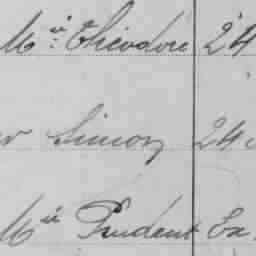 Mis Théodore 24
Simon 24
Mis Prudent Ex